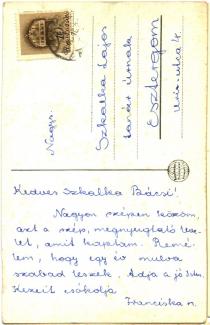 Nagys.
Szkalka Lajos
tanár úrnak
Esztergom
Kedves Szkalka Bácsi!
Nagyon szépen köszönöm,
azt a szép, megnyugtató leve-
let, amit kaptam. Remé-
lem, hogy egy év mulva
szabad leszek. Adja a jó Isten.
Kezeit csókolja
Franciska n.